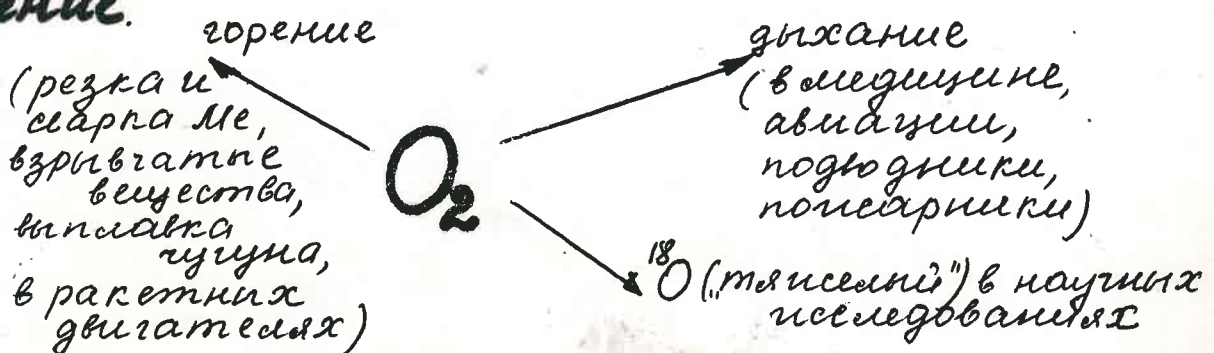 ение.
горение
(резка и
сварка Ме,
взрывчатые
вещества,
выплавка
чугуна,
в ракетных
двигателях)
O₂
дыхание
(в медицине,
авиации,
подводники,
пожарники)
¹⁸O („тяжелый") в научных
исследованиях